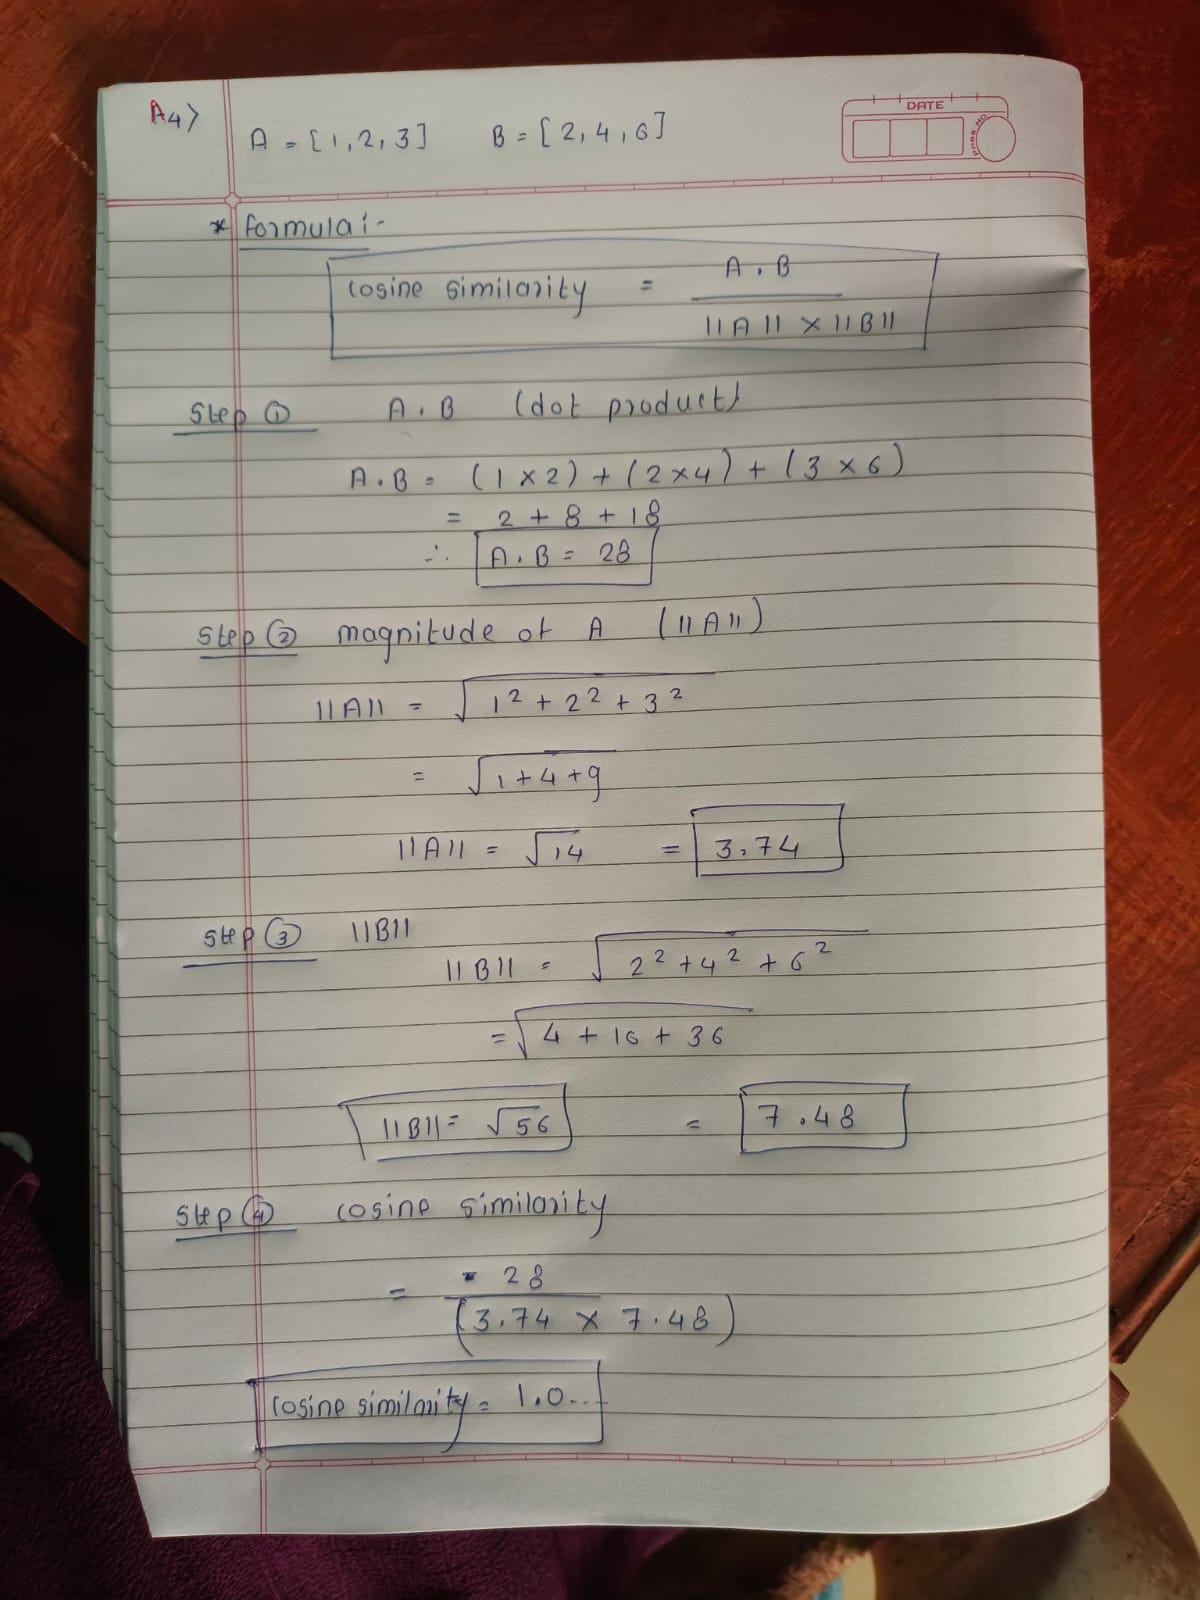 A4>
A = [1,2,3] B = [2,4,6]
DATE
PAGE NO
* formula:-
cosine similarity = A . B / ||A|| × ||B||
Step ① A . B (dot product)
A . B = (1 × 2) + (2 × 4) + (3 × 6)
= 2 + 8 + 18
∴ A . B = 28
Step ② magnitude of A (||A||)
||A|| = √1² + 2² + 3²
= √1 + 4 + 9
||A|| = √14 = 3.74
Step ③ ||B||
||B|| = √2² + 4² + 6²
= √4 + 16 + 36
||B|| = √56 = 7.48
Step ④ cosine similarity
= 28 / (3.74 × 7.48)
cosine similarity = 1.0...